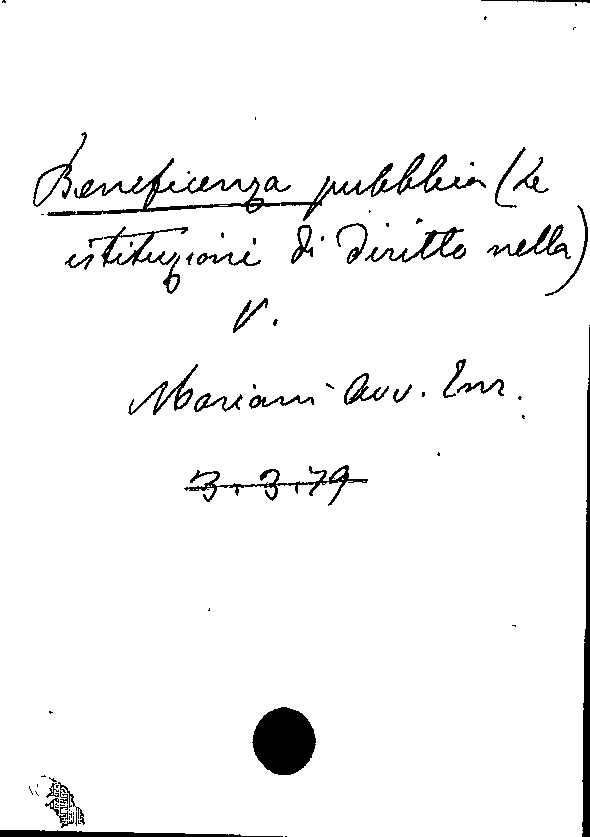 Beneficenza pubblica (Le
istituzioni di diritto nella)
V.
Mariani Avv. Enr.
3.3.79